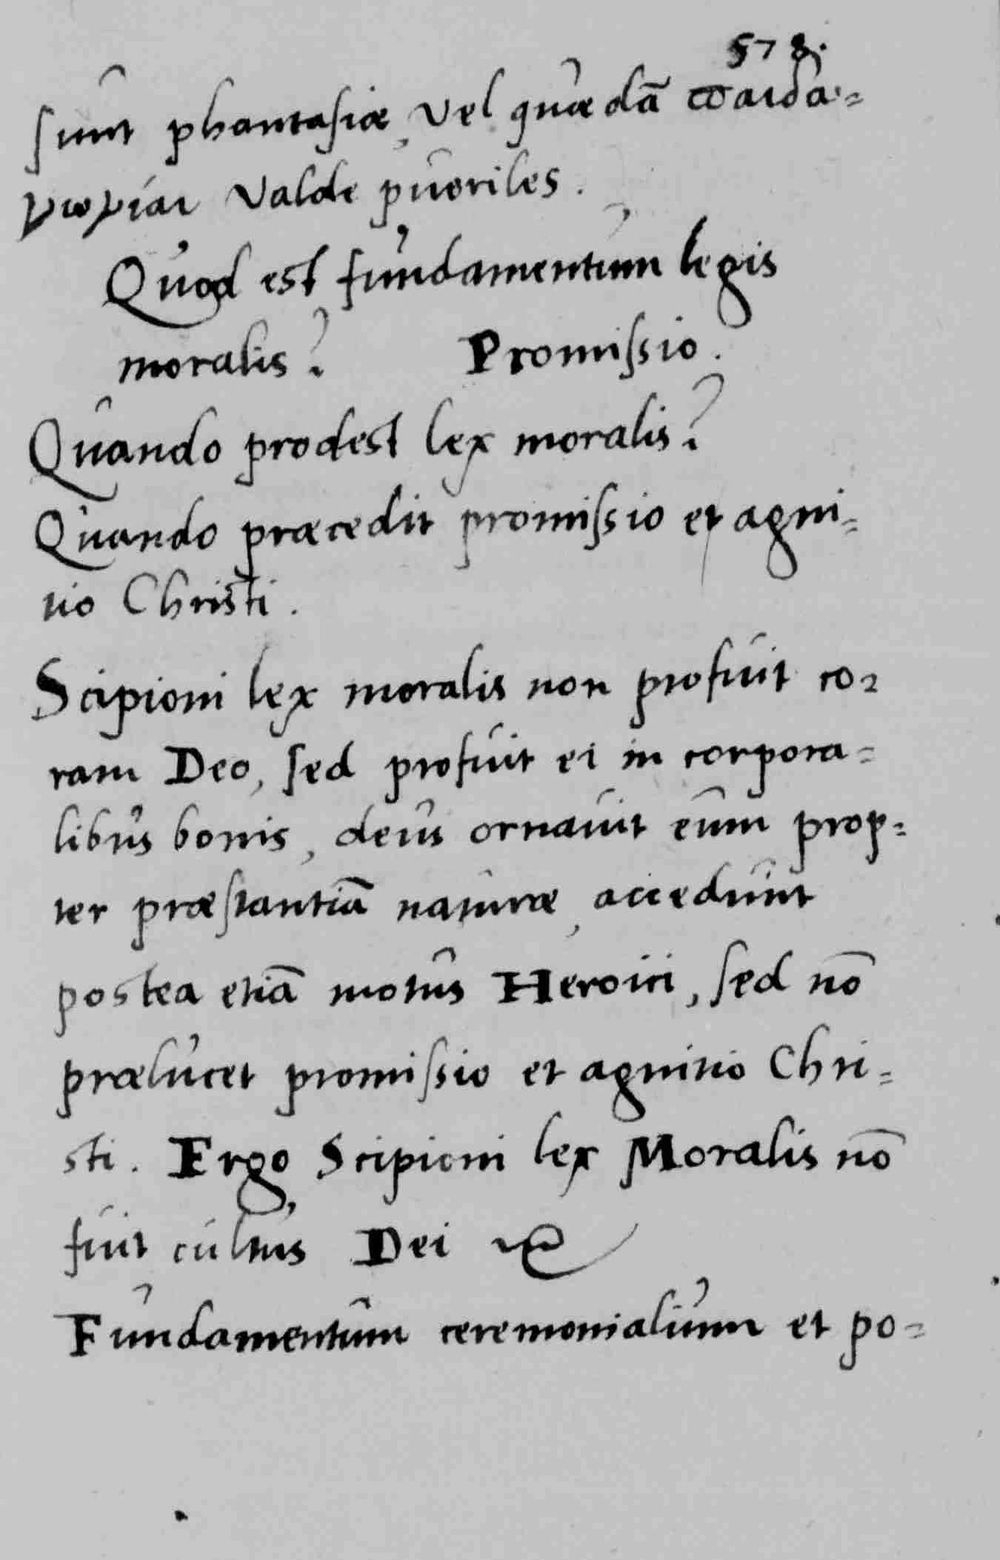 578.
sunt phantasiæ, vel quædā παιδα-
γωγίαι valde pueriles.
Quod est fundamentum legis
moralis? Promissio.
Quando prodest lex moralis?
Quando præcedit promissio et agni-
tio Christi.
Scipioni lex moralis non profuit co-
ram Deo, sed profuit ei in corpora-
libus bonis, deus ornavit eum prop-
ter præstantiā naturæ, accedunt
postea etiā motus Heroici, sed nō
prælucet promissio et agnitio Chri-
sti. Ergo Scipioni lex Moralis nō
fuit cultus Dei
Fundamentum ceremonialium et po-